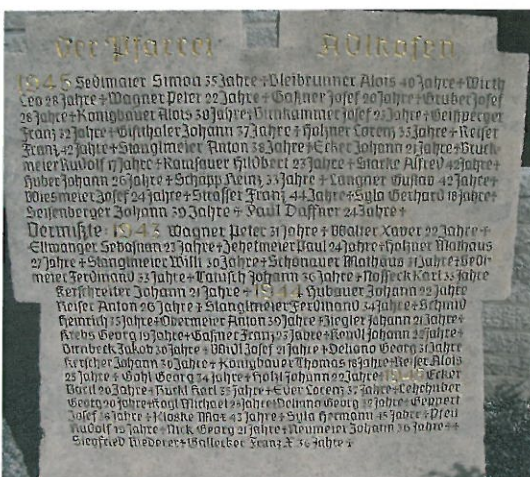 der Pfarrei Adlkofen
1945 Sedlmaier Simon 35 Jahre + Bleibrunner Alois 40 Jahre + Wirth
Leo 28 Jahre + Wagner Peter 22 Jahre + Gaßner Josef 20 Jahre + Gruber Josef
28 Jahre + Königbauer Alois 30 Jahre + Birnkammer Josef 25 Jahre +
Franz 32 Jahre + Johann 37 Jahre + Holzner Lorenz 35 Jahre + Reiser
Franz 42 Jahre + Stanglmeier Anton 38 Jahre + Ecker Johann 21 Jahre + Bruck-
meier Rudolf 17 Jahre + Ramsauer Hildbert 23 Jahre + Starke Alfred 42 Jahre +
Huber Johann 26 Jahre + Schäpp Heinz 33 Jahre + Langner Gustav 42 Jahre +
Wiesmeier Josef 24 Jahre + Strasser Franz 44 Jahre + Syla Gerhard 18 Jahre +
Seisenberger Johann 39 Jahre + Paul Daffner 24 Jahre +
Vermißte: 1943 Wagner Peter 31 Jahre + Walter Xaver 22 Jahre +
Ellwanger Sebastian 23 Jahre + Zehetmeier Paul 24 Jahre + Holzner Mathäus
27 Jahre + Stanglmeier Willi 30 Jahre + Schönauer Mathäus 31 Jahre + Sedl-
meier Ferdinand 33 Jahre + Johann 36 Jahre + Noffeck Karl 35 Jahre
Kerschreiter Johann 21 Jahre + 1944 Hubauer Johann 22 Jahre
Reiser Anton 26 Jahre + Stanglmeier Ferdinand 34 Jahre + Schmid
Heinrich 35 Jahre + Obermeier Anton 39 Jahre + Ziegler Johann 21 Jahre +
Krebs Georg 19 Jahre + Gaßner Franz 23 Jahre + Johann 22 Jahre +
Birnbeck Jakob 30 Jahre + Josef 21 Jahre + Georg 31 Jahre
Kerscher Johann 36 Jahre + Königbauer Thomas 18 Jahre + Reiser Alois
25 Jahre + Gohl Georg 34 Jahre + Hölzl Johann 22 Jahre + 1945 Ecker
Bartl 20 Jahre + Karl 35 Jahre + Lorenz 37 Jahre + Lehrhuber
Georg 20 Jahre + Michael 25 Jahre + Georg 19 Jahre + Geppert
Josef 18 Jahre + Kloske Max 43 Jahre + Syla Hermann 45 Jahre +
Rudolf 19 Jahre + Georg 21 Jahre + Neumeier Johann 36 Jahre +
Siegfried Riederer + Gallecker Franz X. 36 Jahre +